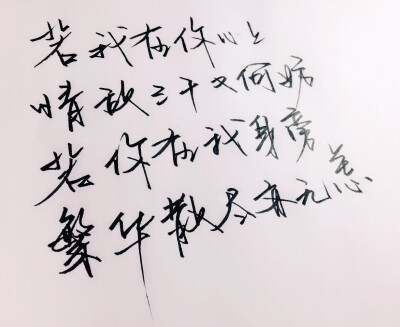 若我在你心上
情敌三千又何妨
若你在我身旁
繁华散尽亦无恙